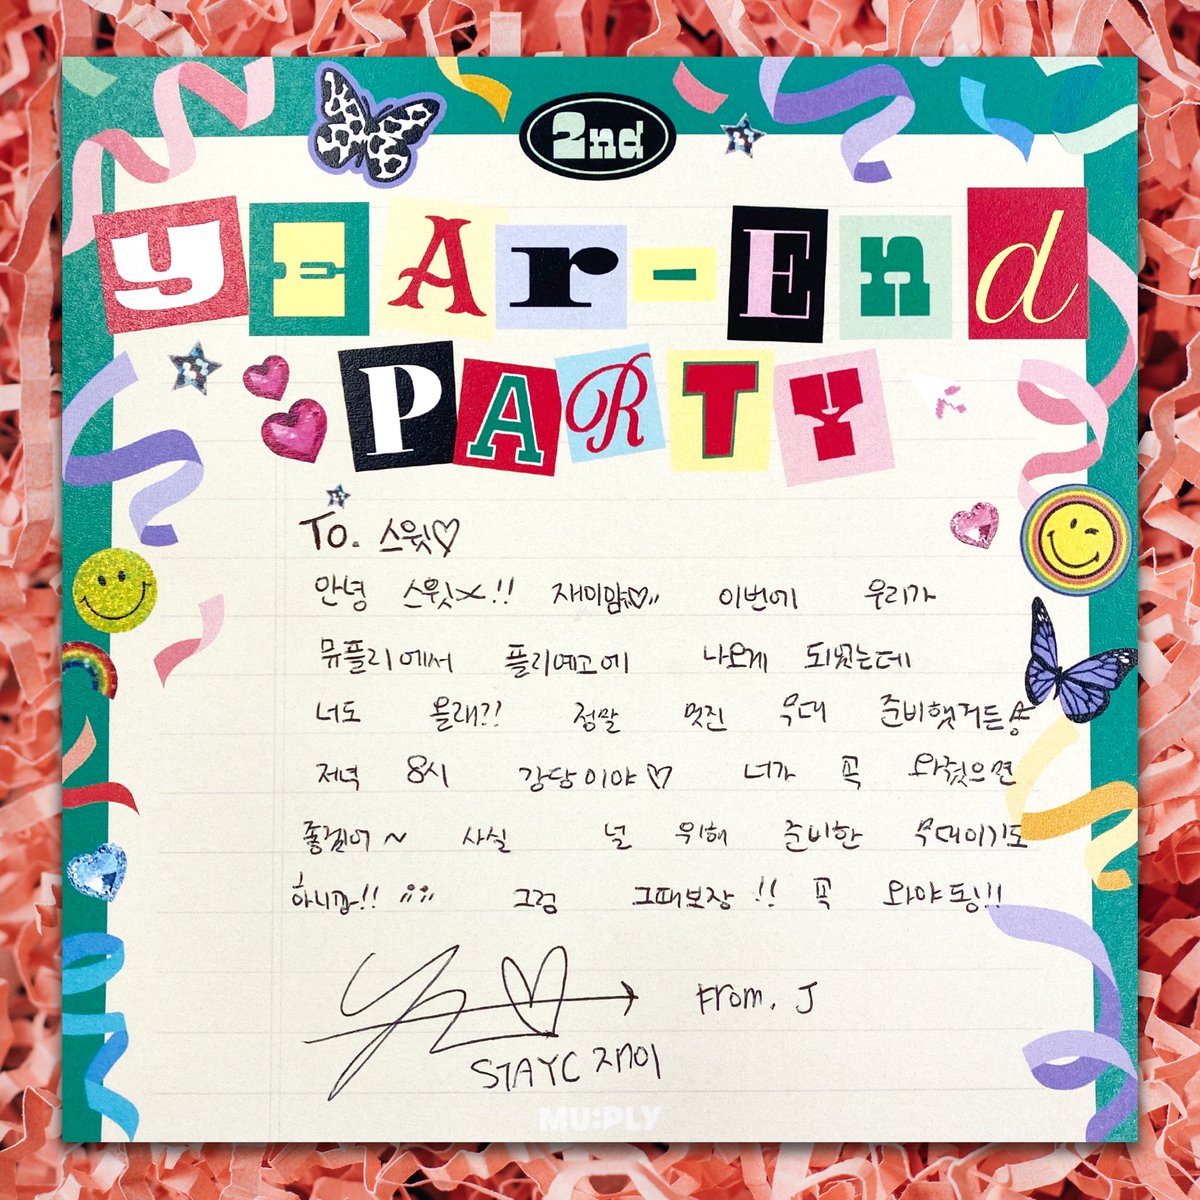 2nd
YEAr-End
PARTY
To. 스윗♡
안녕 스윗ㅆ!! 재미얌♡,, 이번에 우리가
뮤플리에서 플리예고에 나오게 되었는데
너도 올래?? 정말 멋진 무대 준비했거든♪
저녁 8시 강당이야♡ 너가 꼭 와줬으면
좋겠어~ 사실 널 위해 준비한 무대이기도
하니깐!! ;;; 그럼 그때보장!! 꼭 와야됑!!
From. J
STAYC 재이
MU:PLY